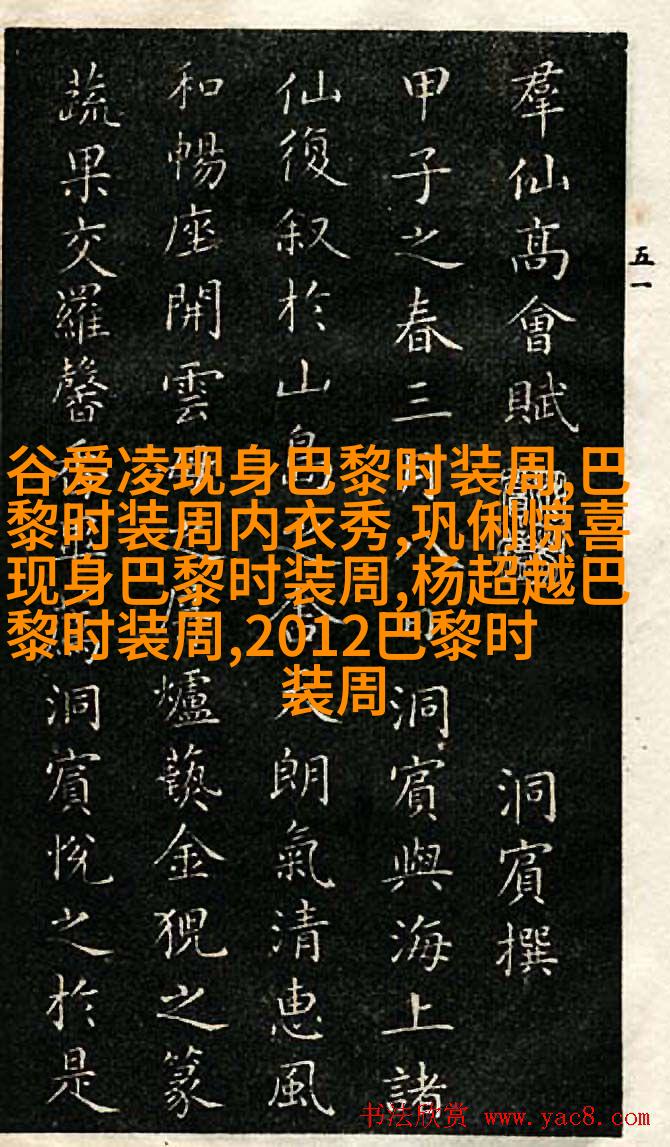 五一
羣仙髙會賦 洞賓撰
甲子之春三月八日洞賓與海上諸
仙復叙於山島之 朗氣清惠風
和暢座開雲 爐爇金猊之篆
蔬果交羅馨香 洞賓悅之於是
谷爱凌现身巴黎时装周,巴
黎时装周内衣秀,巩俐惊喜
现身巴黎时装周,杨超越巴
黎时装周,2012巴黎时
装周
书法欣赏 www.yac8.com